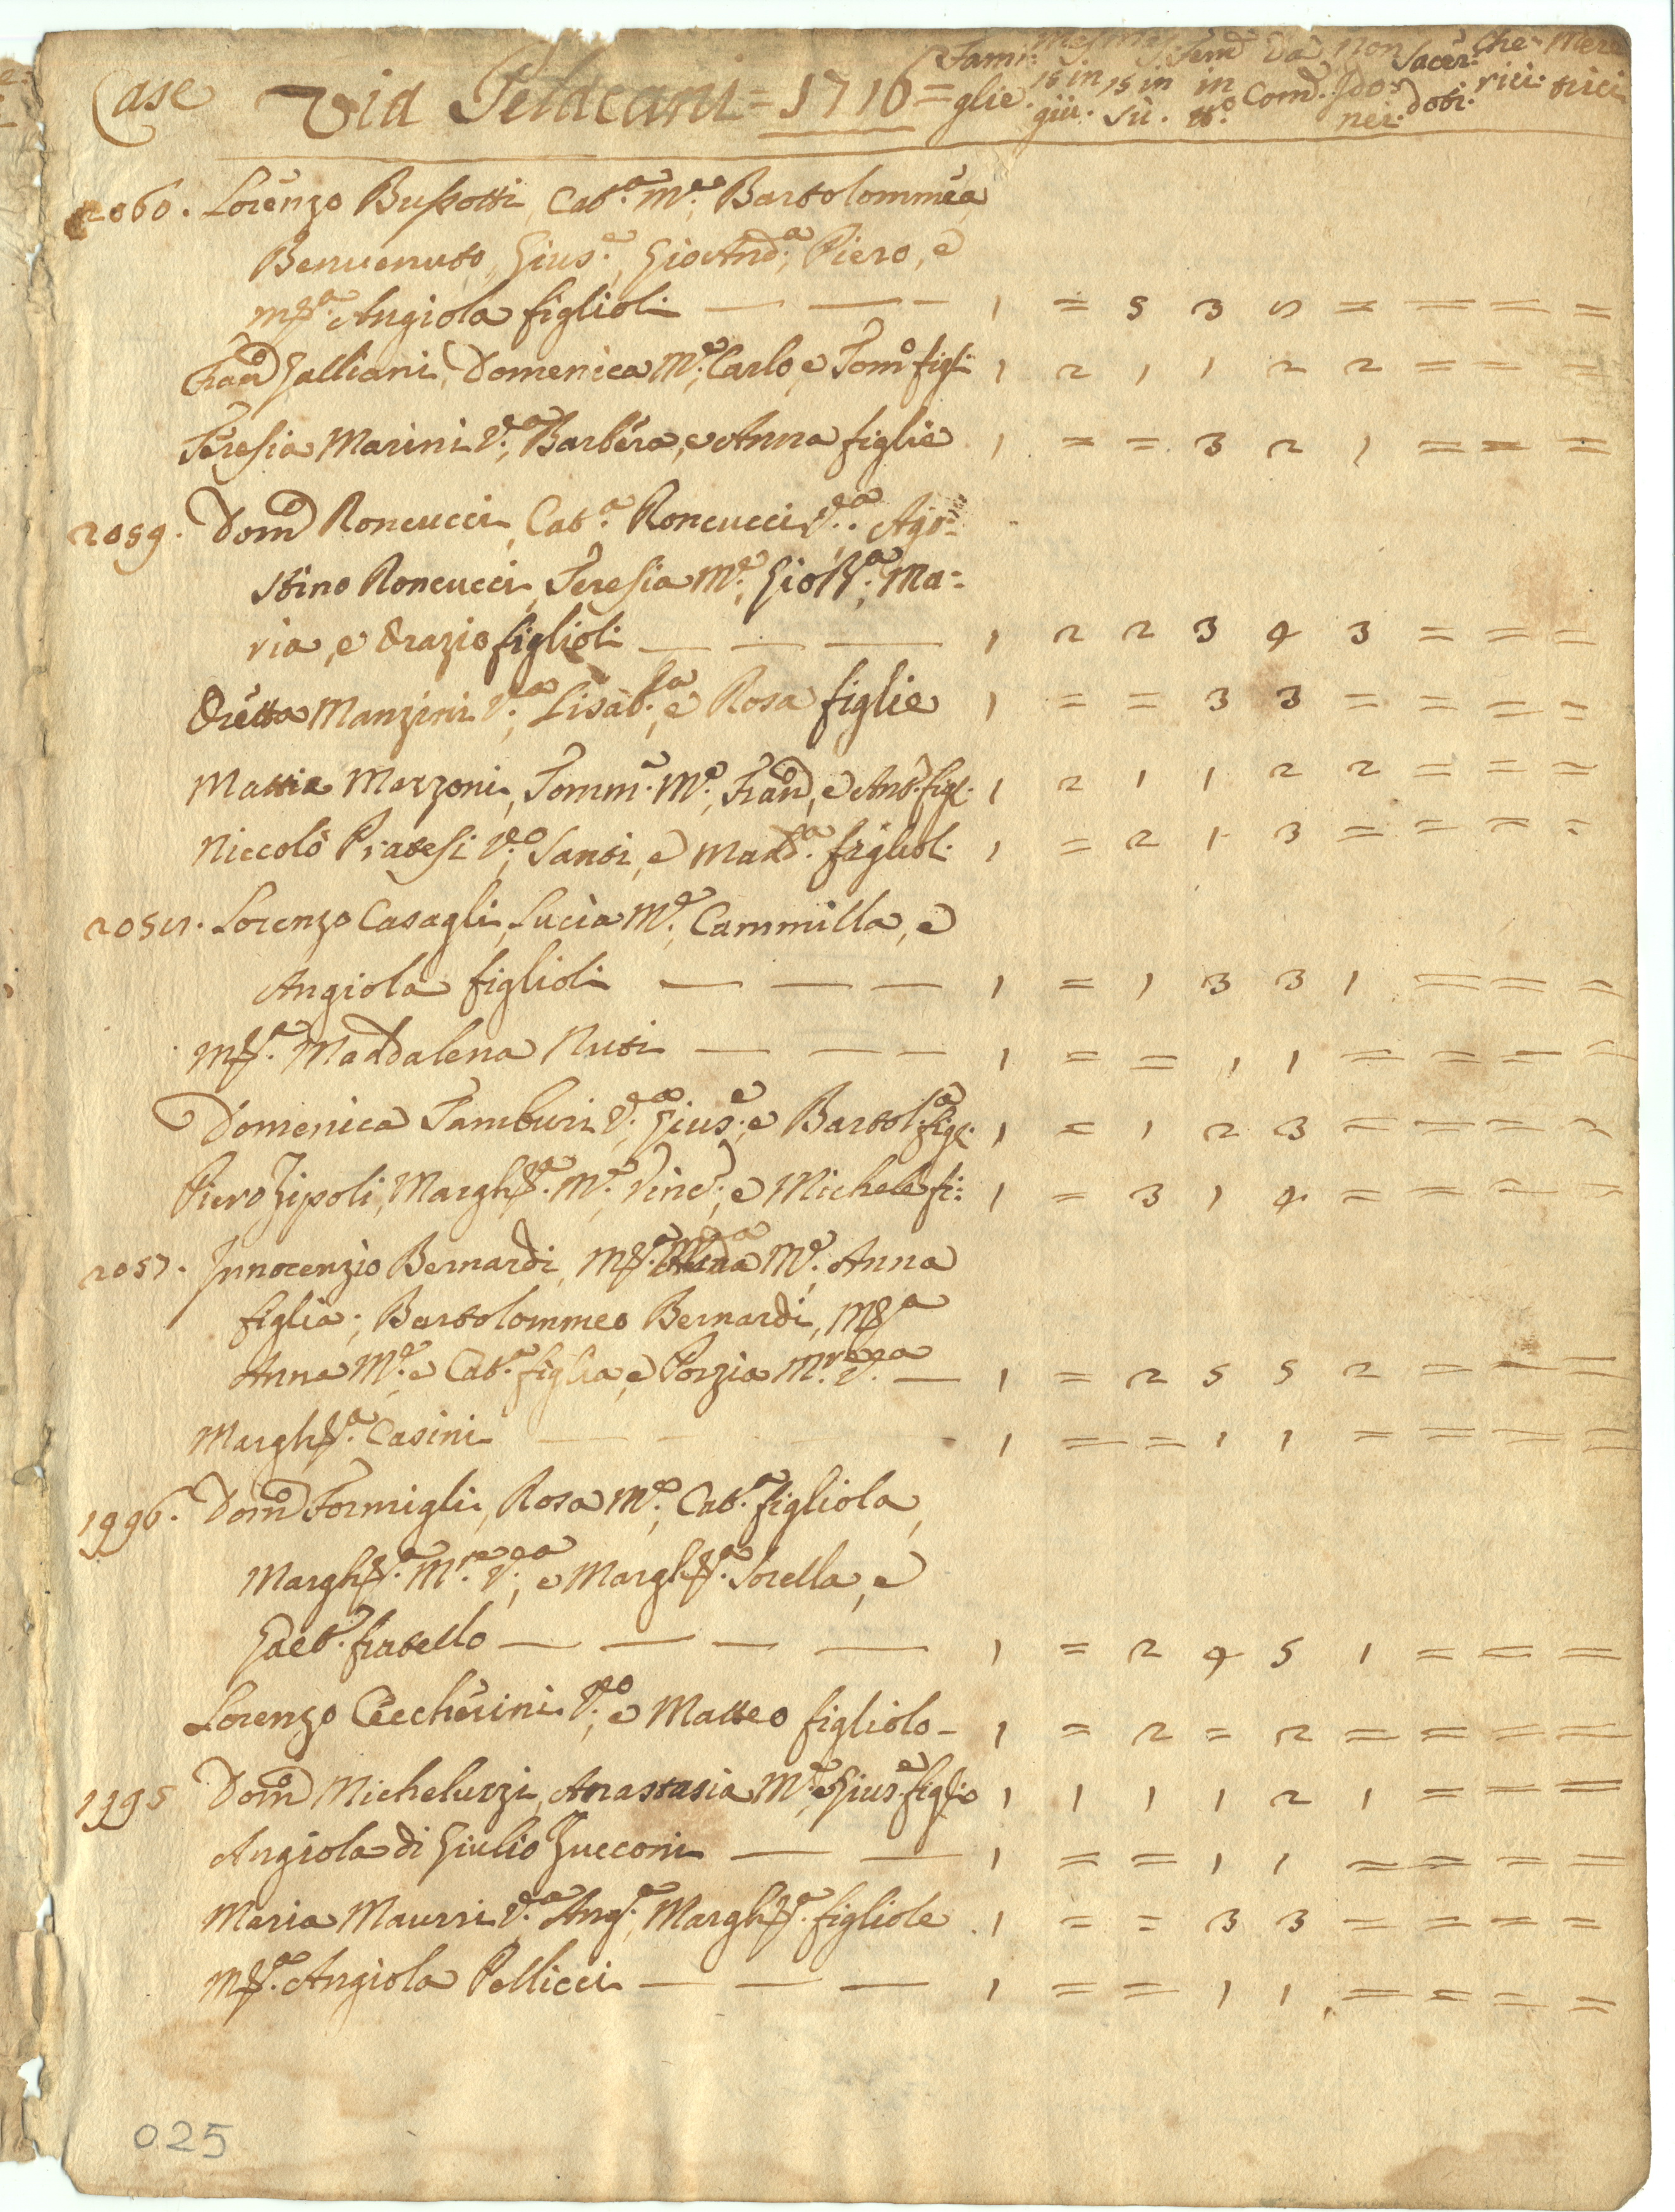 Case Via Teldeani = 1716 = Fami: glie. Mas. 15 in giù. Mas. 15 in sù. Fem.e in n.o Da Com.e Non Ido: nei. Sacer: doti. Che: rici. Mere: trici
2060. Lorenzo Bussotti, Cat.a M.e, Bartolommea
Benvenuto, Gius.e, Gio And.a, Piero, e
M.a Angiola figlioli — — — 1 = 5 3 8 = = = =
Fran.o Galliani, Domenica M.e, Carlo, e Tom.o figli 1 2 1 1 2 2 = = =
Teresia Marini V.a, Barbera, e Anna figlie 1 = = 3 2 1 = = =
2059. Dom.o Roncucci, Cat.a Roncucci V.a, Ago=
stino Roncucci, Teresia M.e, Gio B.a, Ma=
ria, e Orazio figlioli — — — 1 2 2 3 4 3 = = =
Oretta Manzini V.a, Lisab.a, e Rosa figlie 1 = = 3 3 = = = =
Mattia Merzoni, Tomm.a M.e, Fran.o, e Ant.o figl. 1 2 1 1 2 2 = = =
Niccolò Pratesi V.o, Santi, e Madd.a figlioli 1 = 2 1 3 = = = =
2058. Lorenzo Casagli, Lucia M.e, Cammilla, e
Angiola figlioli — — — 1 = 1 3 3 1 = = =
M.a Maddalena Nuti — — — 1 = = 1 1 = = = =
Domenica Tamburi V.a, Gius.e, e Bartol.a figl. 1 = 1 2 3 = = = =
Piero Zipoli, Margh.a M.e, Vinc.o, e Michele fi: 1 = 3 1 4 = = = =
2057. Innocenzio Bernardi, M.a M.e, Anna
figlia; Bartolommeo Bernardi, M.a
Anna M.e, e Cat.a figlia, e Porzia M.re V.a — 1 = 2 5 5 2 = = =
Margh.a Casini — — 1 = = 1 1 = = = =
1996. Dom.o Formigli, Rosa M.e, Cat.a figliola,
Margh.a M.re V.a, e Margh.a Sorella, e
Gaet.o fratello — — — — 1 = 2 4 5 1 = = =
Lorenzo Ceccherini V.o, e Matteo figliolo - 1 = 2 = 2 = = = =
1995 Dom.o Micheluzzi, Anastasia M.e, e Gius.e figlio 1 1 1 1 2 1 = = =
Angiola di Giulio Zucconi — — 1 = = 1 1 = = = =
Maria Maurri V.a, Ang.a, Margh.a figliole 1 = = 3 3 = = = =
M.a Angiola Pellicci — — — 1 = = 1 1 = = = =
025